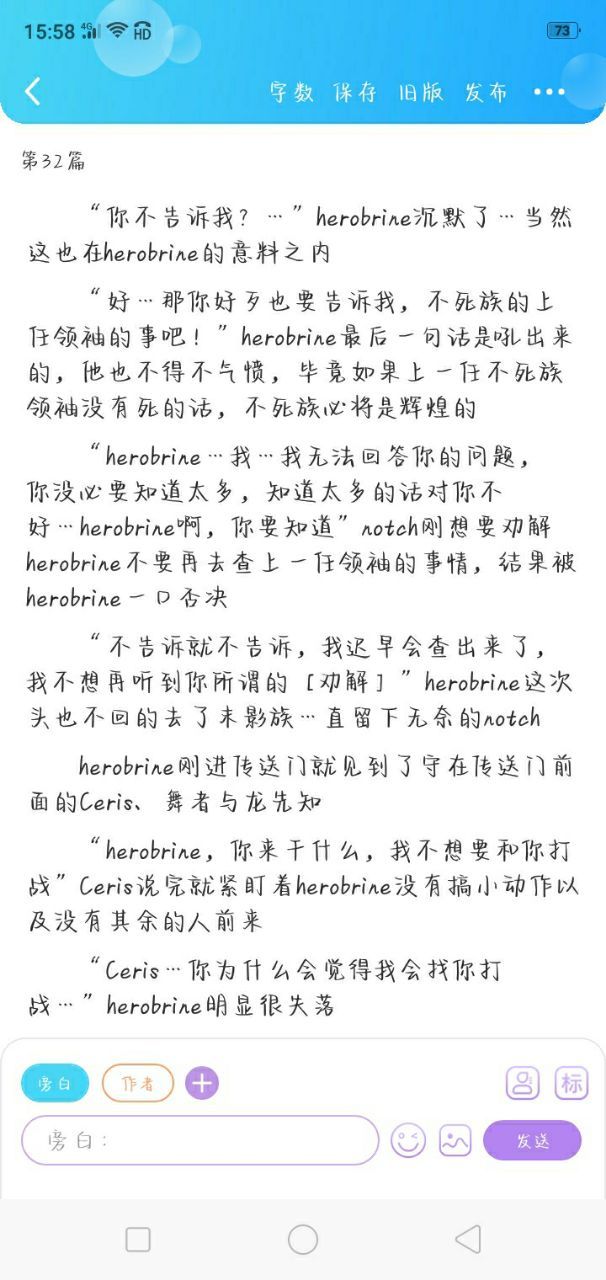 15:58 4G HD 73
字数 保存 旧版 发布 •••
第32篇
“你不告诉我？…”herobrine沉默了…当然
这也在herobrine的意料之内
“好…那你好歹也要告诉我，不死族的上
任领袖的事吧！”herobrine最后一句话是吼出来
的，他也不得不气愤，毕竟如果上一任不死族
领袖没有死的话，不死族必将是辉煌的
“herobrine…我…我无法回答你的问题，
你没必要知道太多，知道太多的话对你不
好…herobrine啊，你要知道”notch刚想要劝解
herobrine不要再去查上一任领袖的事情，结果被
herobrine一口否决
“不告诉就不告诉，我迟早会查出来了，
我不想再听到你所谓的［劝解］”herobrine这次
头也不回的去了末影族…直留下无奈的notch
herobrine刚进传送门就见到了守在传送门前
面的Ceris、舞者与龙先知
“herobrine，你来干什么，我不想要和你打
战”Ceris说完就紧盯着herobrine没有搞小动作以
及没有其余的人前来
“Ceris…你为什么会觉得我会找你打
战…”herobrine明显很失落
旁白 作者 标
旁白： 发送